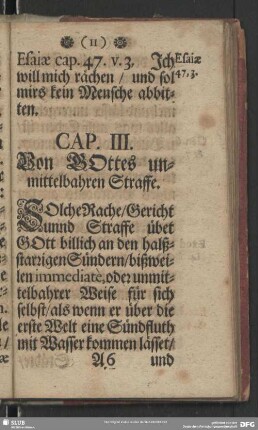 (11)
Esaiæ cap. 47. v. 3. Ich
will mich rächen / und sol
mirs kein Mensche abbit-
ten.
Esaiæ
47. 3.
CAP. III.
Von GOttes un-
mittelbahren Straffe.
SOlche Rache / Gericht
unnd Straffe übet
GOtt billich an den halß-
starrigen Sündern / bißwei-
len immediatè, oder unmit-
telbahrer Weise für sich
selbst / als wenn er über die
erste Welt eine Sündfluth
mit Wasser kommen lässet /
A 6 und
SLUB
DFG